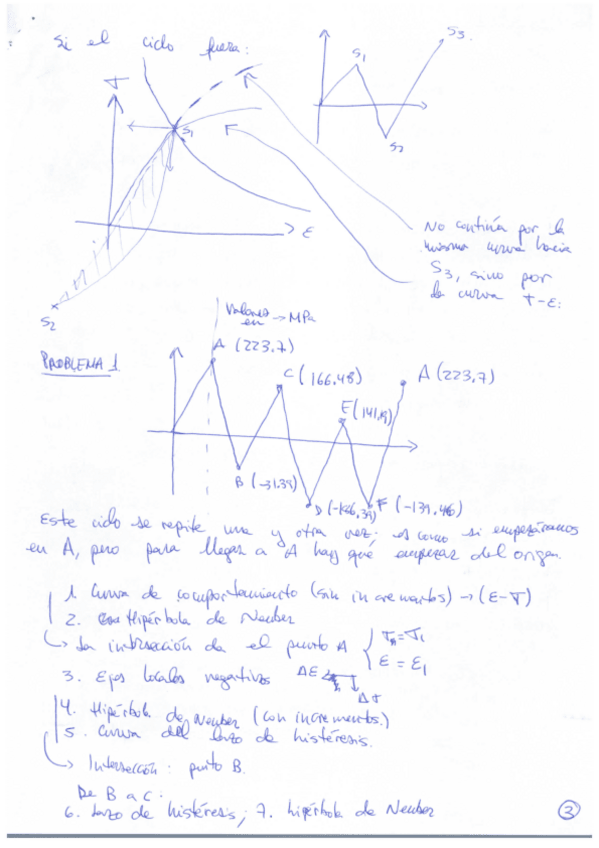 Si el ciclo fuera:
S3.
S1
S2
σ
S1
ε
S2
No continúa por la
misma curva hacia
S3, sino por
la curva σ-ε:
Valores
en → MPa
PROBLEMA 1.
A (223,7)
C (166,48)
A (223,7)
E (141,19)
B (-31.39)
D (-146,39)
F (-139,46)
Este ciclo se repite una y otra vez: es como si empezáramos
en A, pero para llegar a A hay qué empezar del origen.
1. Curva de comportamiento (sin incrementos) → (ε-σ)
2. Hipérbola de Neuber
La intersección da el punto A { σA = σ1
ε = ε1
3. Ejes locales negativos Δε
Δσ
4. Hipérbola de Neuber (con incrementos)
5. Curva del lazo de histéresis.
Intersección: punto B.
De B a C:
6. Lazo de histéresis; 7. hipérbola de Neuber
3